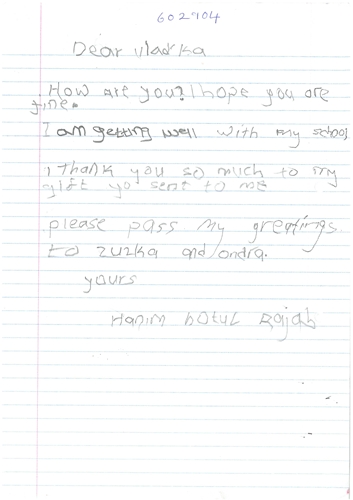 602704
Dear vladka
How are you? I hope you are
fine.
I am getting well with my school
I thank you so much to my
gift yo sent to me
please pass my greatings
to zuzka and ondra.
yours
Hanim hotul Rajab